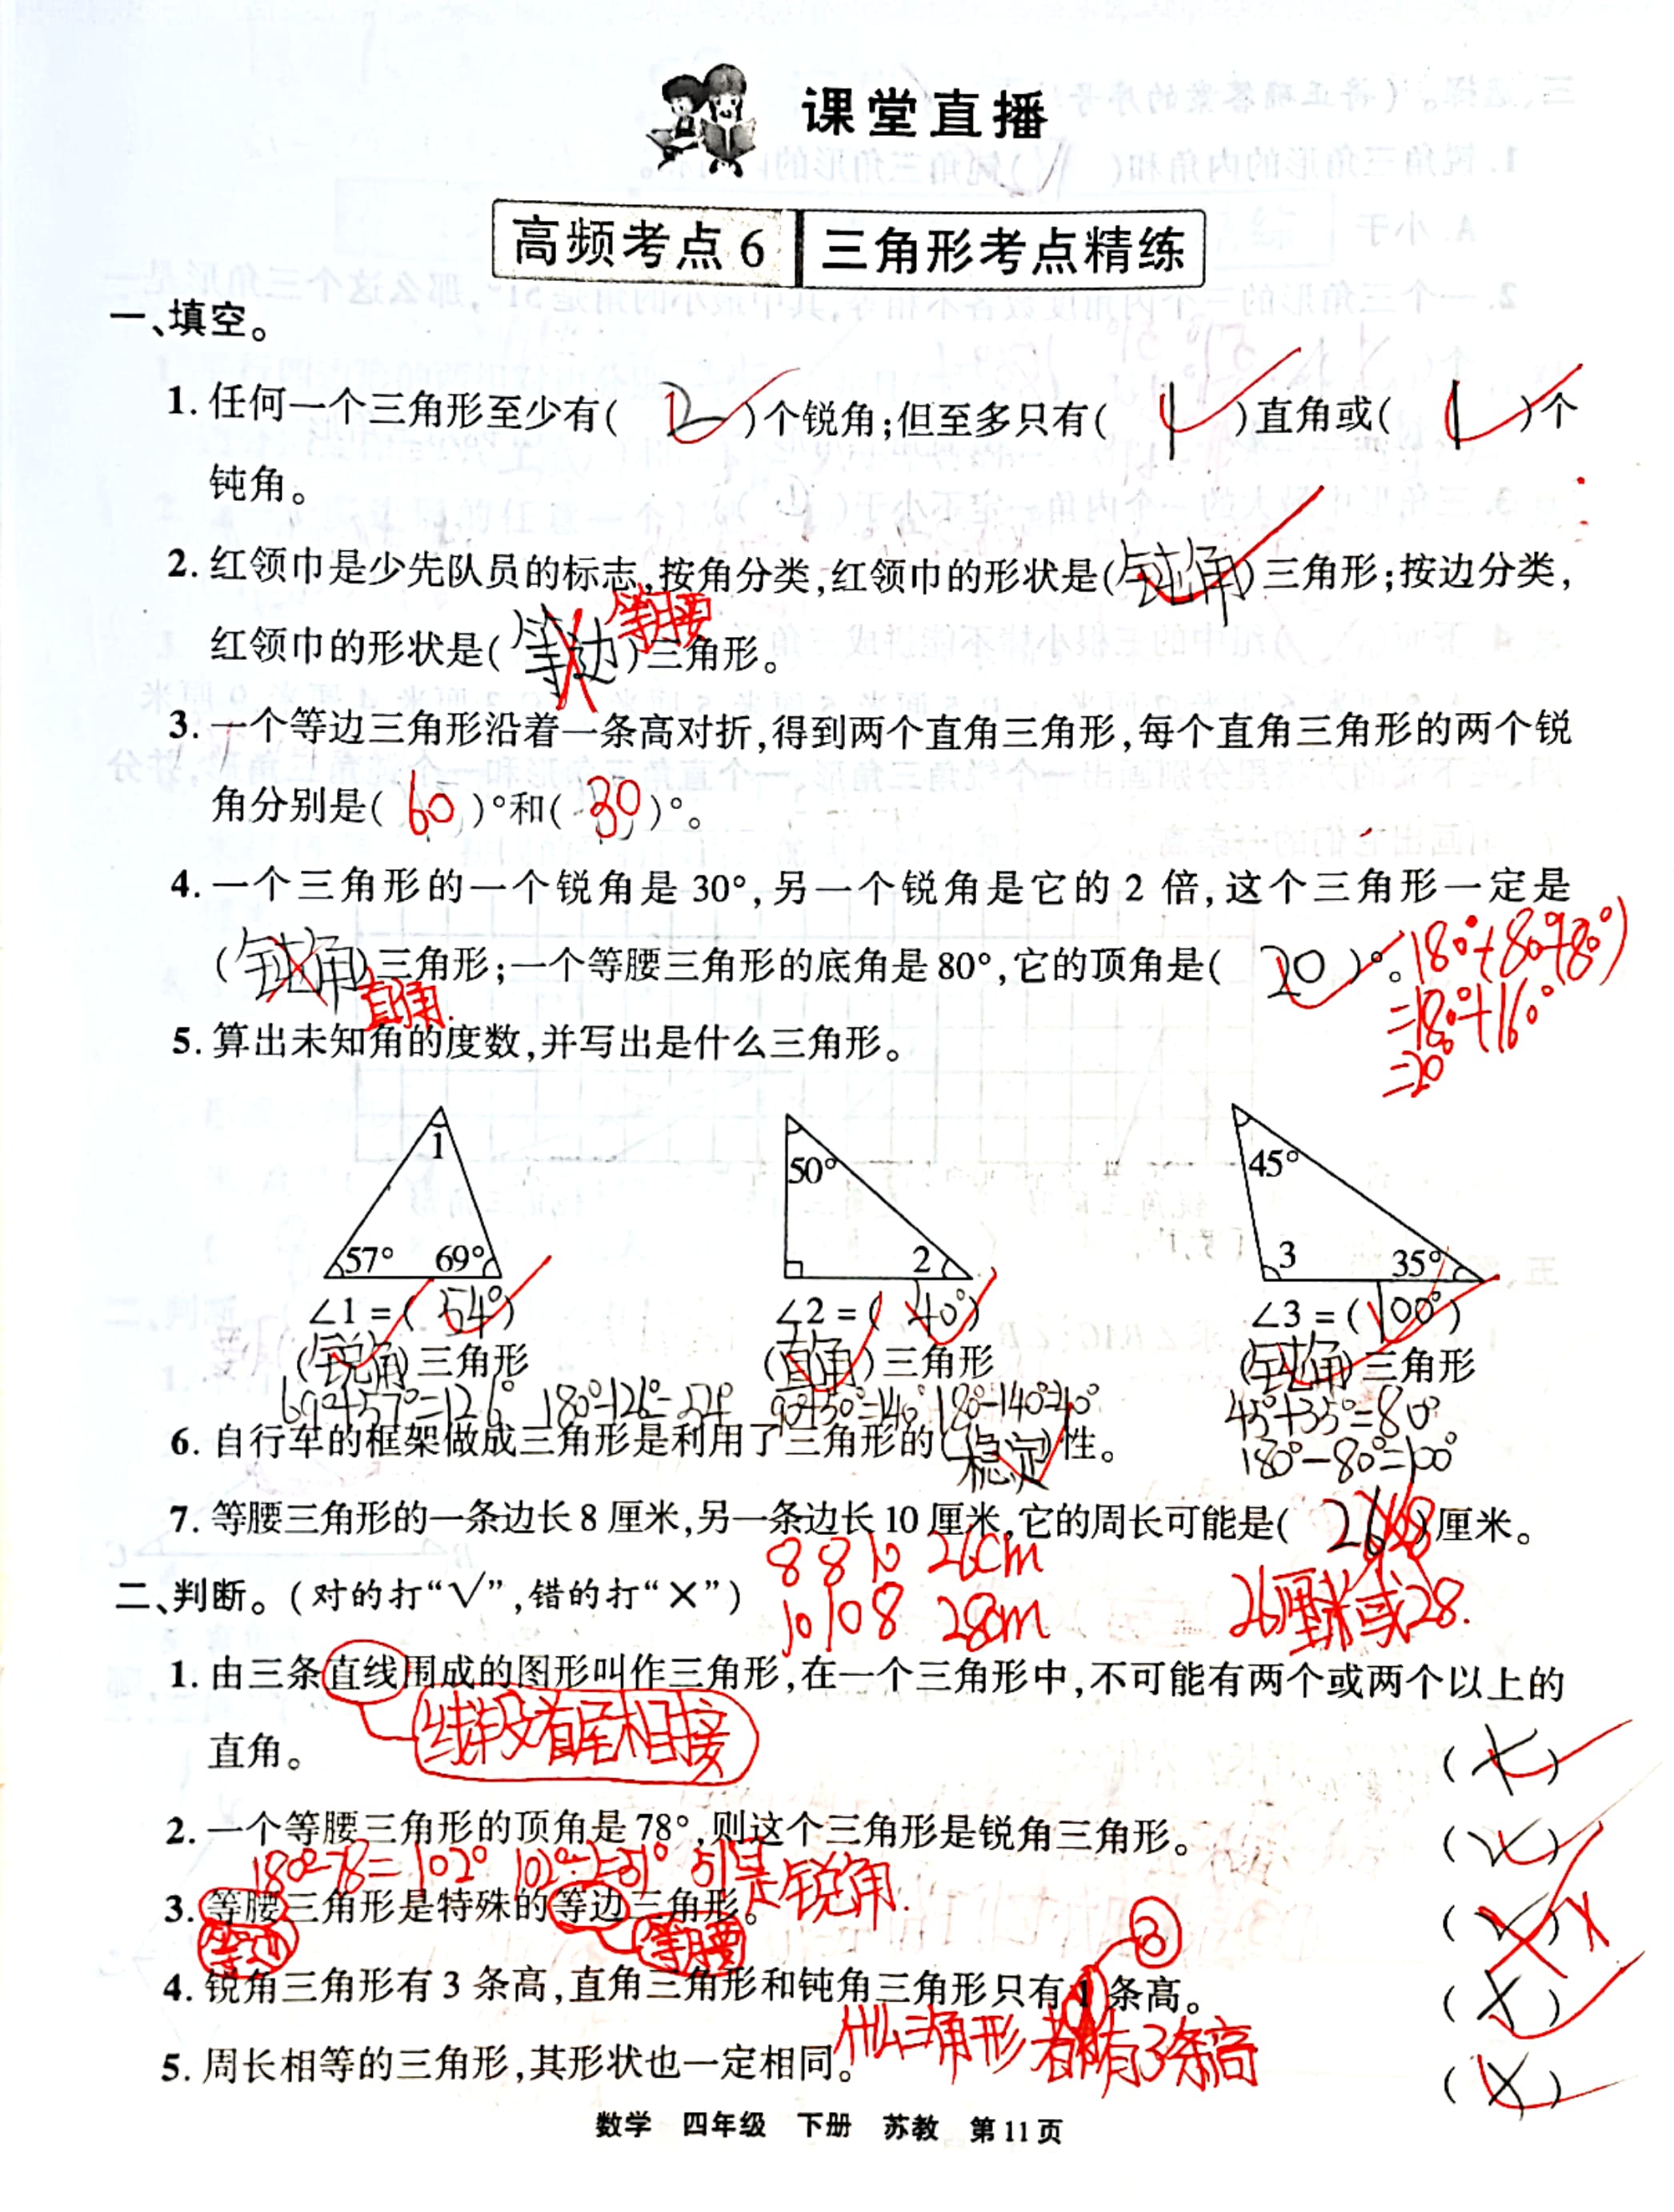 课堂直播
高频考点6 三角形考点精练
一、填空。
1. 任何一个三角形至少有( 2 )个锐角;但至多只有( 1 )直角或( 1 )个
钝角。
2. 红领巾是少先队员的标志,按角分类,红领巾的形状是(钝角)三角形;按边分类,
等腰
红领巾的形状是( 等边 )三角形。
3. 一个等边三角形沿着一条高对折,得到两个直角三角形,每个直角三角形的两个锐
角分别是( 60 )°和( 30 )°。
4. 一个三角形的一个锐角是30°,另一个锐角是它的2倍,这个三角形一定是
(钝角)三角形;一个等腰三角形的底角是80°,它的顶角是( 20 )°。
180°+80°+80°)
直角.
=180°+160°
=20°
5. 算出未知角的度数,并写出是什么三角形。
1 57° 69°
50° 2
45° 3 35°
∠1=( 54°) ∠2=( 40°) ∠3=(100°)
(锐角)三角形 (直角)三角形 (钝角)三角形
69°+57°=126° 180°-126°=54° 90°+50°=140° 180°-140°=40° 45°+35°=80°
180°-80°=100°
6. 自行车的框架做成三角形是利用了三角形的(稳定)性。
7. 等腰三角形的一条边长8厘米,另一条边长10厘米,它的周长可能是( 26 )厘米。
8 8 10 26cm
10 10 8 28cm
26厘米或28.
二、判断。(对的打“√”,错的打“×”)
1. 由三条直线围成的图形叫作三角形,在一个三角形中,不可能有两个或两个以上的
线段首尾相接
直角。 ( × )
2. 一个等腰三角形的顶角是78°,则这个三角形是锐角三角形。 ( √ )
180°-78=102° 102°÷2=51° 51是锐角.
3. 等腰三角形是特殊的等边三角形。 ( √ ) ×
等边 等腰
③
4. 锐角三角形有3条高,直角三角形和钝角三角形只有1条高。 ( × )
什么三角形都有3条高
5. 周长相等的三角形,其形状也一定相同。 ( × )
数学 四年级 下册 苏教 第11页